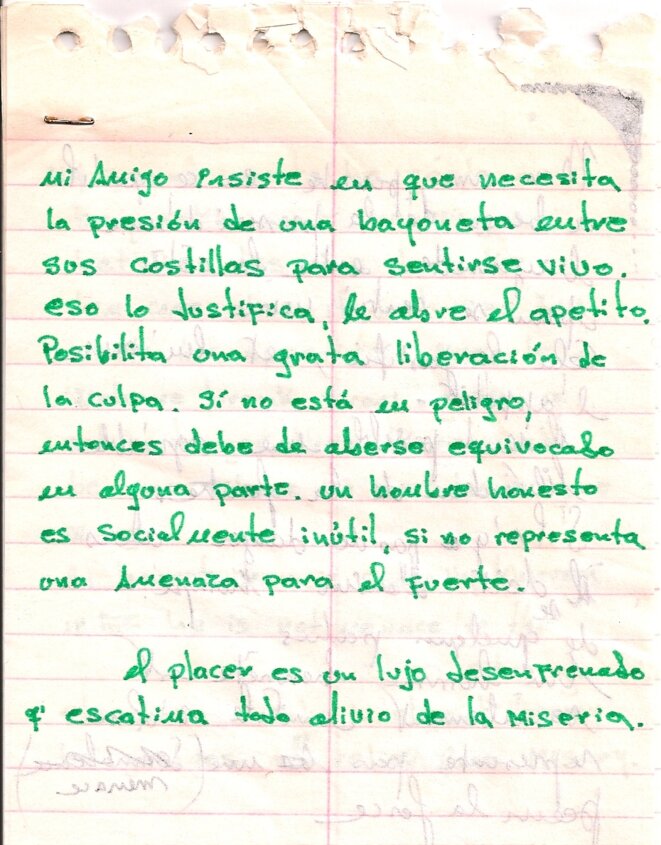 mi Amigo insiste en que necesita
la presión de una bayoneta entre
sus costillas para sentirse vivo.
eso lo Justifica, le abre el apetito.
Posibilita una grata liberación de
la culpa. Sí no está en peligro,
entonces debe de aberse equivocado
en alguna parte. un hombre honesto
es socialmente inútil, si no representa
una Amenaza para el Fuerte.
el placer es un lujo desenfrenado
q' escatima todo alivio de la Miseria.